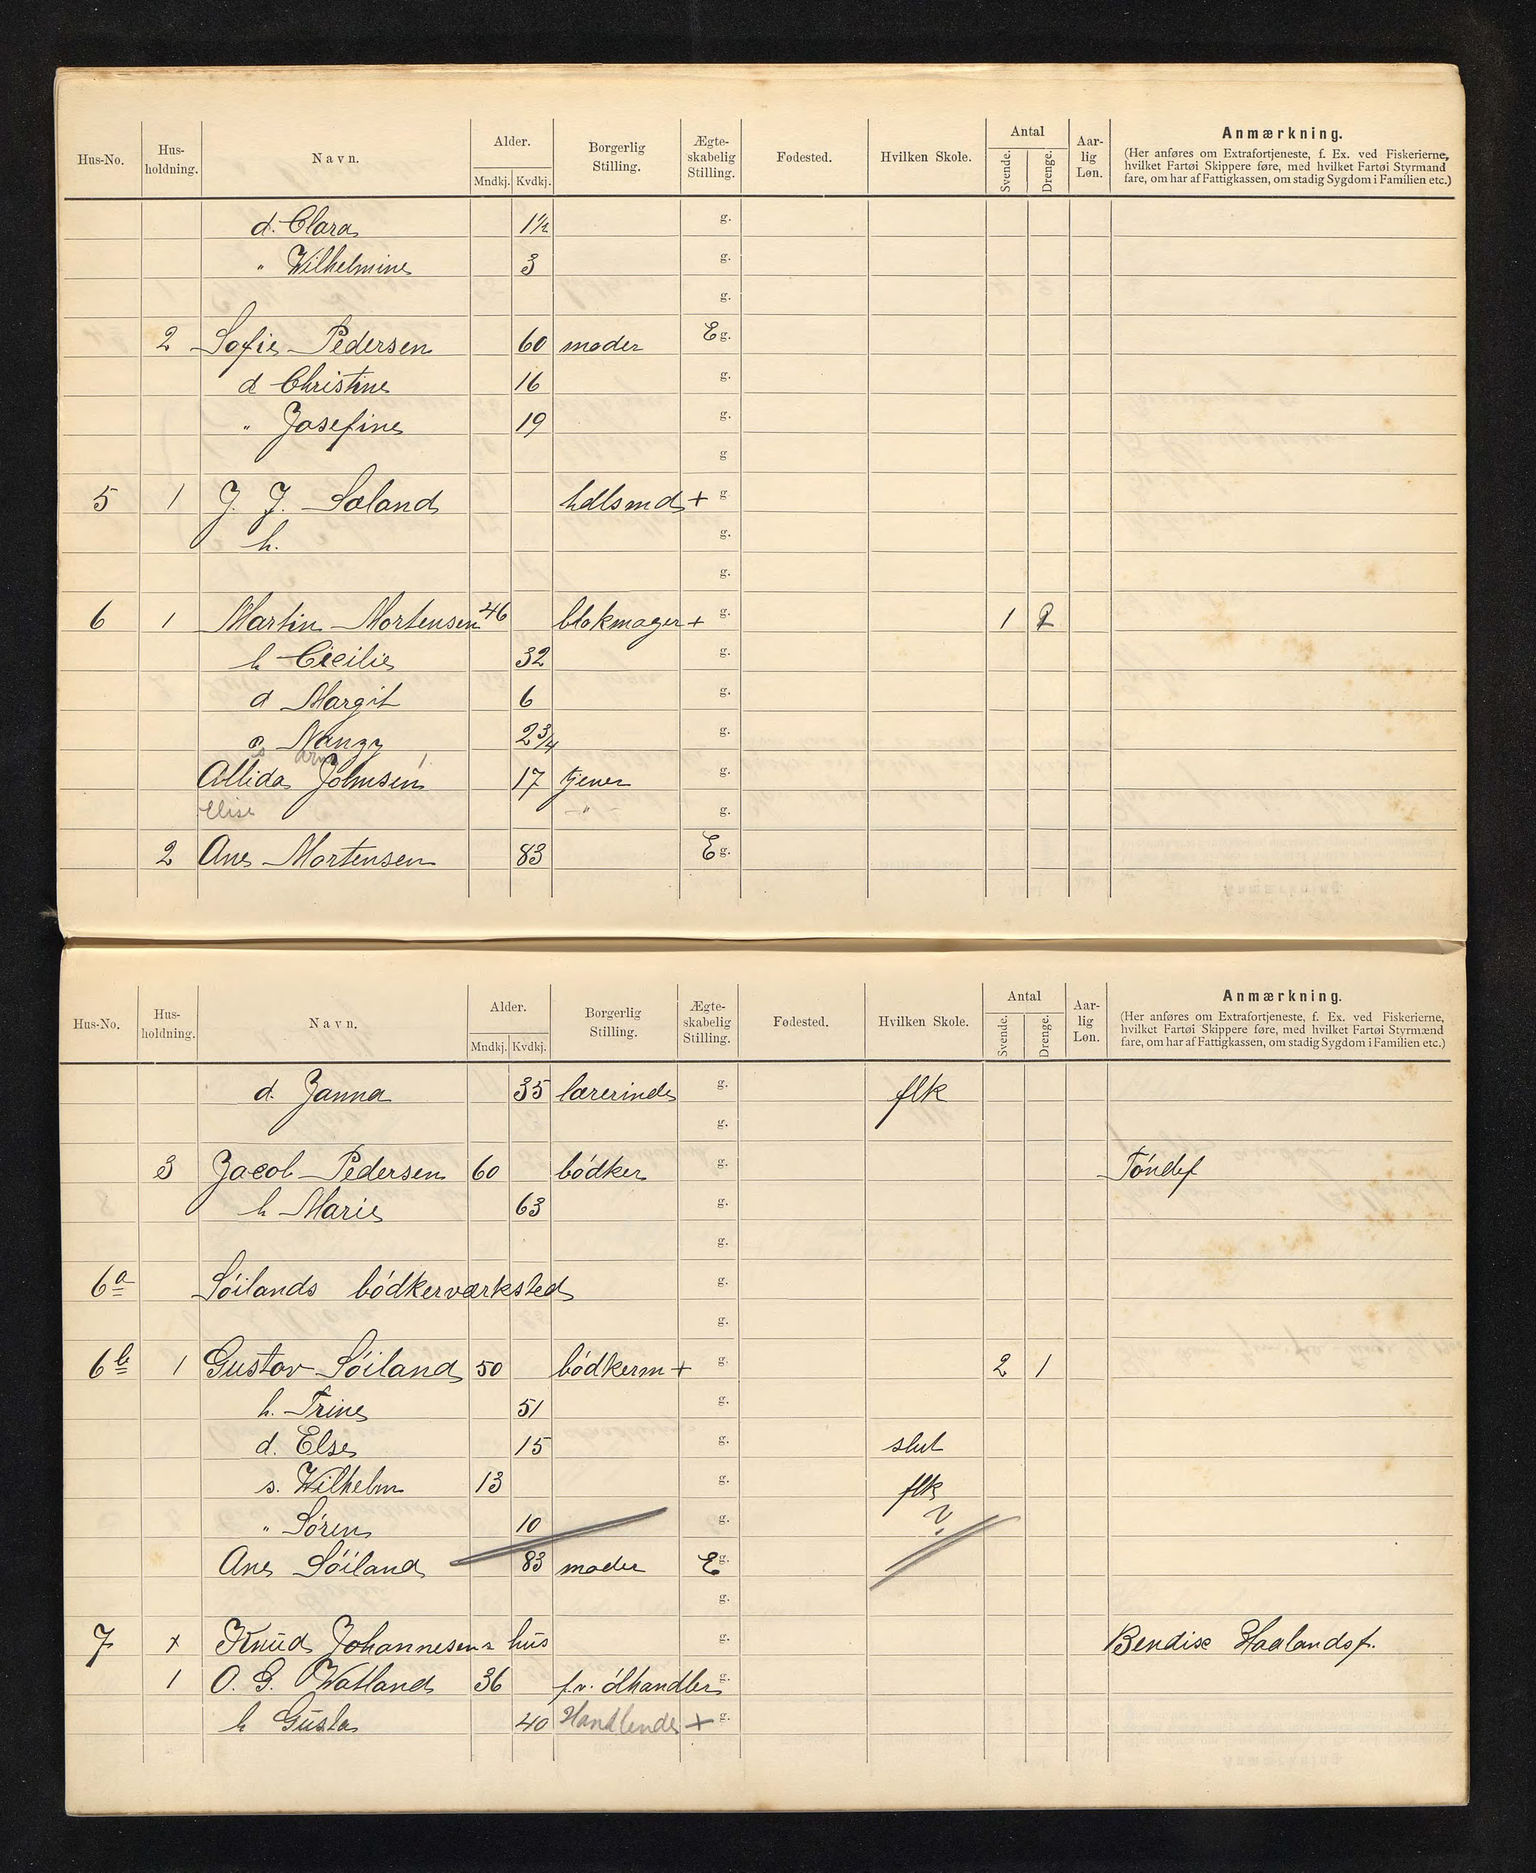 Hus-No. Hus-holdning. Navn. Alder. Mndkj. Kvdkj. Borgerlig Stilling. Ægte-skabelig Stilling. Fødested. Hvilken Skole. Antal Svende. Drenge. Aar-lig Løn. Anmærkning.
(Her anføres om Extrafortjeneste, f. Ex. ved Fiskerierne, hvilket Fartøi Skippere føre, med hvilket Fartøi Styrmænd fare, om har af Fattigkassen, om stadig Sygdom i Familien etc.)
d. Clara 1½ g.
" Wilhelmine 3 g.
g.
2 Sofie Pedersen 60 moder E g.
d Christine 16 g.
" Josefine 19 g.
g.
5 1 J. J. Soland hdlsmd + g.
h. g.
g.
6 1 Martin Mortensen 46 blokmager + g. 1
h Cecilie 32 g.
d Margit 6 g.
Nangy 2¾ g.
Allida Johnsen 17 tjener g.
Elise " g.
2 Ane Mortensen 83 E g.
Hus-No. Hus-holdning. Navn. Alder. Mndkj. Kvdkj. Borgerlig Stilling. Ægte-skabelig Stilling. Fødested. Hvilken Skole. Antal Svende. Drenge. Aar-lig Løn. Anmærkning.
(Her anføres om Extrafortjeneste, f. Ex. ved Fiskerierne, hvilket Fartøi Skippere føre, med hvilket Fartøi Styrmænd fare, om har af Fattigkassen, om stadig Sygdom i Familien etc.)
d. Janna 35 lærerinde g. flk
g.
3 Jacob Pedersen 60 bódker g. Tóndef
h Marie 63 g.
g.
6a Sóilands bódkerværksted g.
g.
6b 1 Gustav Sóiland 50 bódkerm + g. 2 1
h. Trine 51 g.
d. Else 15 g. slut
s. Wilhelm 13 g. flk
" Sóren 10 g. v.
Ane Sóiland 83 moder E g.
g.
7 x Knud Johannesens hus g. Bendixe Haalandsf.
1 O. G. Watland 36 f.v. ólhandler g.
h Gusta 40 Handlende + g.